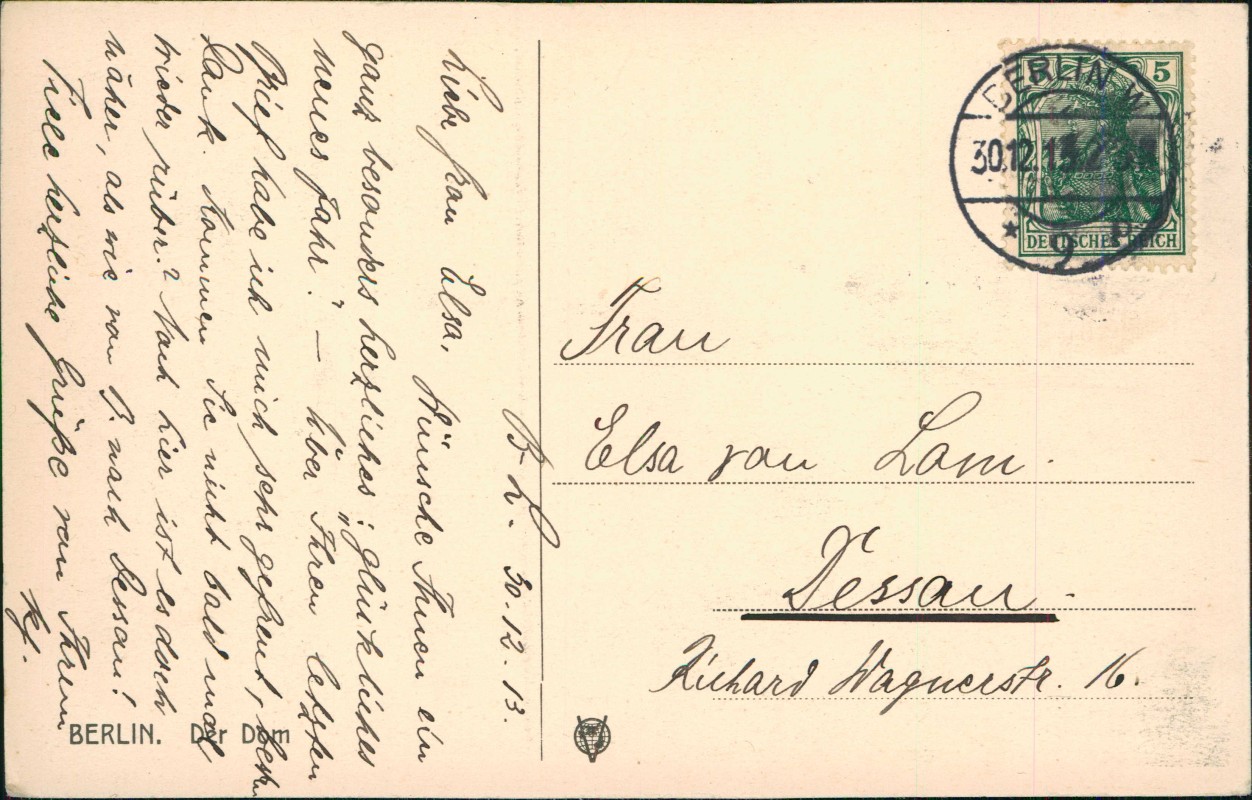 B-L. 30.12.13.
Liebe Frau Elsa. Wünsche Ihnen ein
ganz besonders herzliches: „glückliches
neues Jahr!" — Über Ihren letzten
Brief habe ich mich sehr gefreut, besten
Dank. Kommen Sie nicht bald mal
wieder rüber? Nach hier ist es doch
näher, als wie von J. nach Dessau!
Viele herzliche Grüße von Ihrem
BERLIN. Der Dom
BERLIN W
30.12.13.2
* 9
5
DEUTSCHES REICH
Frau
Elsa von Lom.
Dessau.
Richard Wagnerstr. 16.